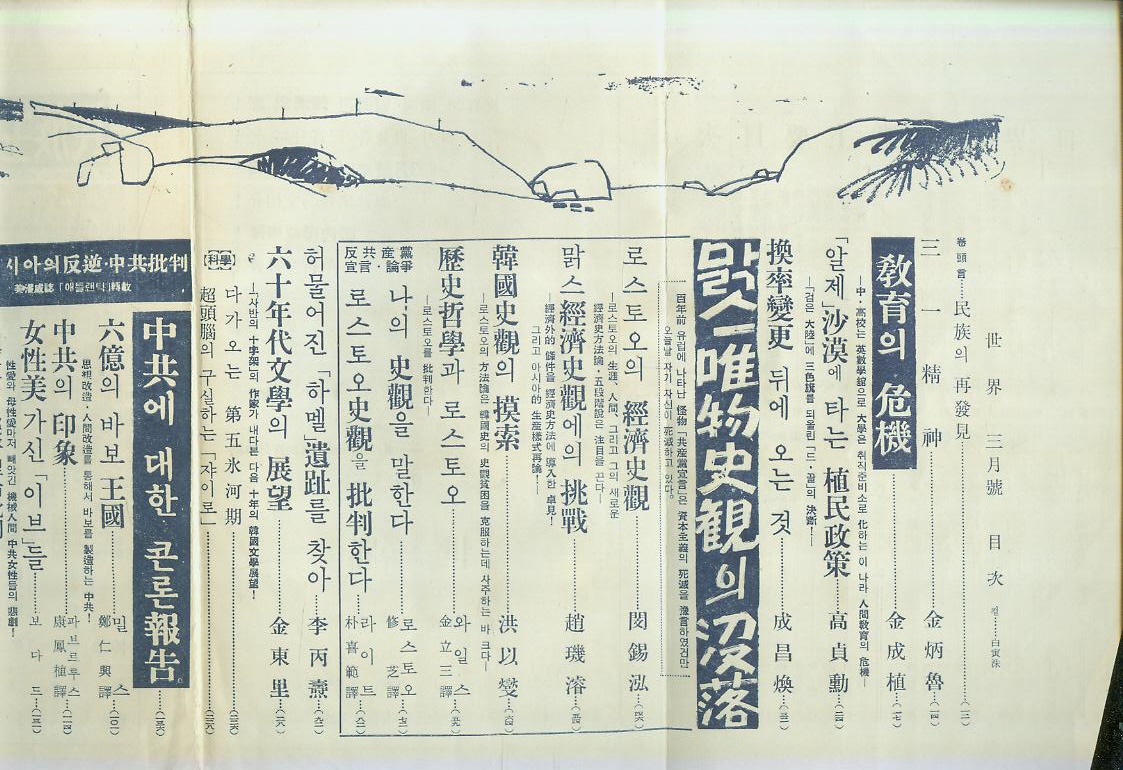 世界 三月號 目次
白寅洙
卷頭言……民族の再發見……(一二)
三一精神……金炳魯…(一四)
敎育의 危機……金成植…(一七)
—中·高校는 英數學舘으로 大學은 취직준비소로 化하는 이 나라 人間敎育의 危機—
「알제」沙漠에 타는 植民政策……高貞勳…(二四)
—「검은 大陸」에 三色旗를 되올린 「드·골」의 決斷!—
換率變更 뒤에 오는 것……成昌煥…(三一)
맑스—唯物史観의 沒落
百年前 유럽에 나타난 怪物 「共産黨宣言」은 資本主義의 死滅을 豫言하였건만
오늘날 자기 자신이 死滅하고 있다。
로스토오의 經濟史觀……閔錫泓…(四六)
—로스토오의 生涯、人間、그리고 그의 새로운
經濟史方法論·五段階說은 注目을 끈다—
맑스經濟史觀에의 挑戰……趙璣濬…(五四)
—經濟外的 條件을 經濟史方法에 導入한 卓見!
그리고 아시아的 生産樣式 再論!—
韓國史觀의 摸索……洪以燮…(六四)
—로스토오의 方法論은 韓國史의 史觀貧困을 克服하는데 시주하는 바 크다—
歷史哲學과 로스토오……와일스 金立三譯…(六九)
—로스토오를 批判한다—
黨爭
産論
나의 史觀을 말한다……로스토오 修芝譯…(七二)
共言·
反宣
로스토오史觀을 批判한다……라이트 朴喜範譯…(八二)
허물어진 「하멜」遺趾를 찾아…李丙燾…(九二)
六十年代文學의 展望……金東里…
—「사반의 十字架」의 作家가 내다본 다음 十年의 韓國文學展望!
【科學】
다가오는 第五氷河期……
超頭腦의 구실하는 「쟈이로」……
시아의 反逆·中共批判
「애틀랜틱」轉載
中共에 대한 콘론報告。…
六億의 바보 王國……밀스 鄭仁興譯…
思想改造·人間改造를 통해서 바보를 製造하는 中共!
中共의 印象……파브르루스 康鳳植譯…(二四)
女性美 가신 「이브」들……보다드…
性愛와 母性愛마저 빼앗긴 機械人間 中共女性들의 悲劇!